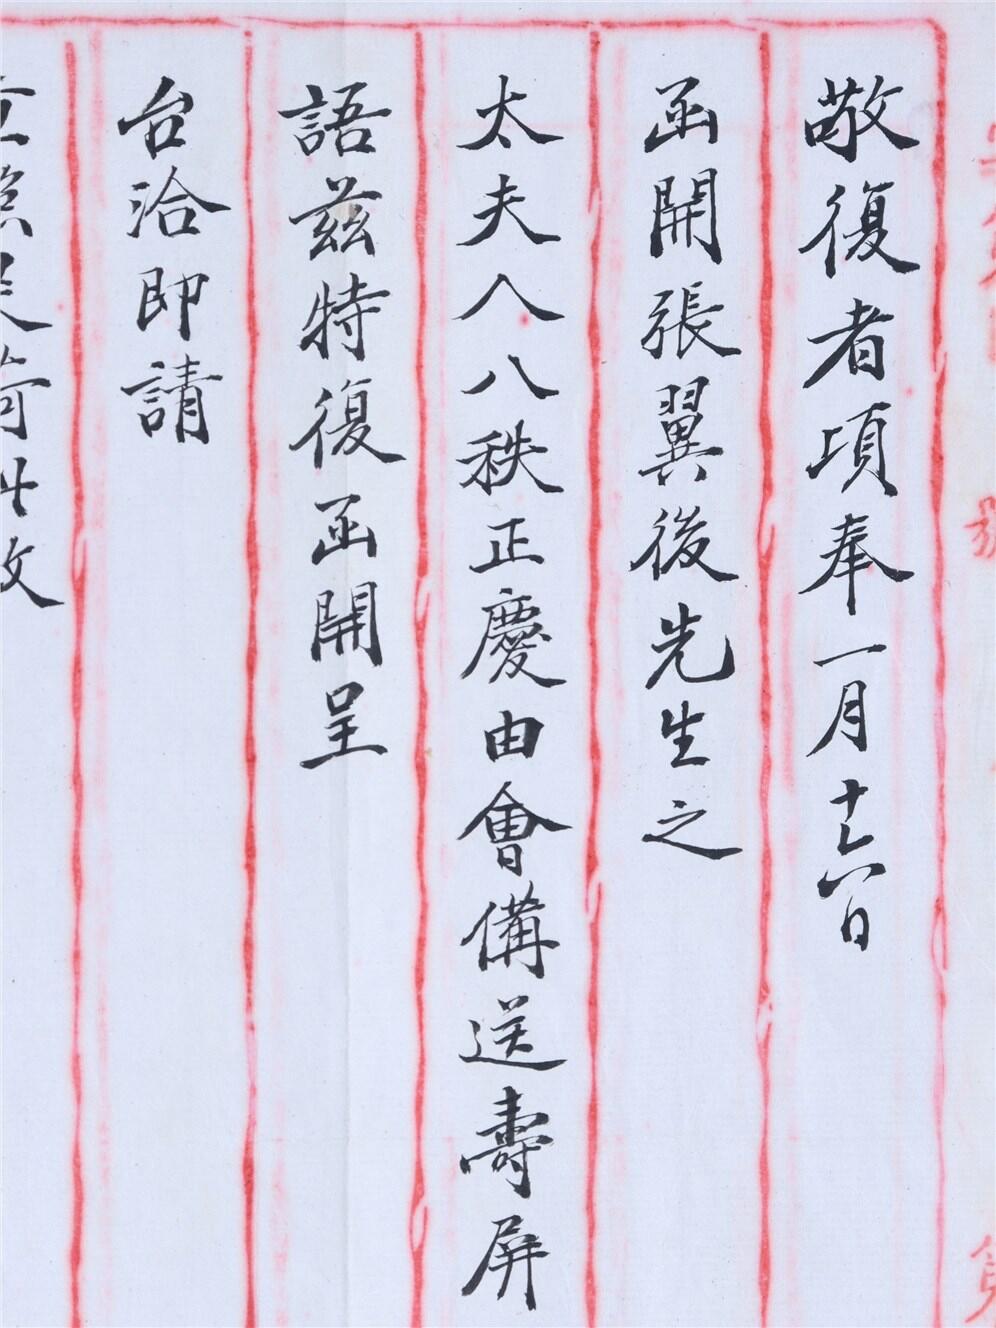 敬復者頃奉一月十六日
函開張翼後先生之
太夫人八秩正慶由會備送壽屏
語茲特復函開呈
台洽即請